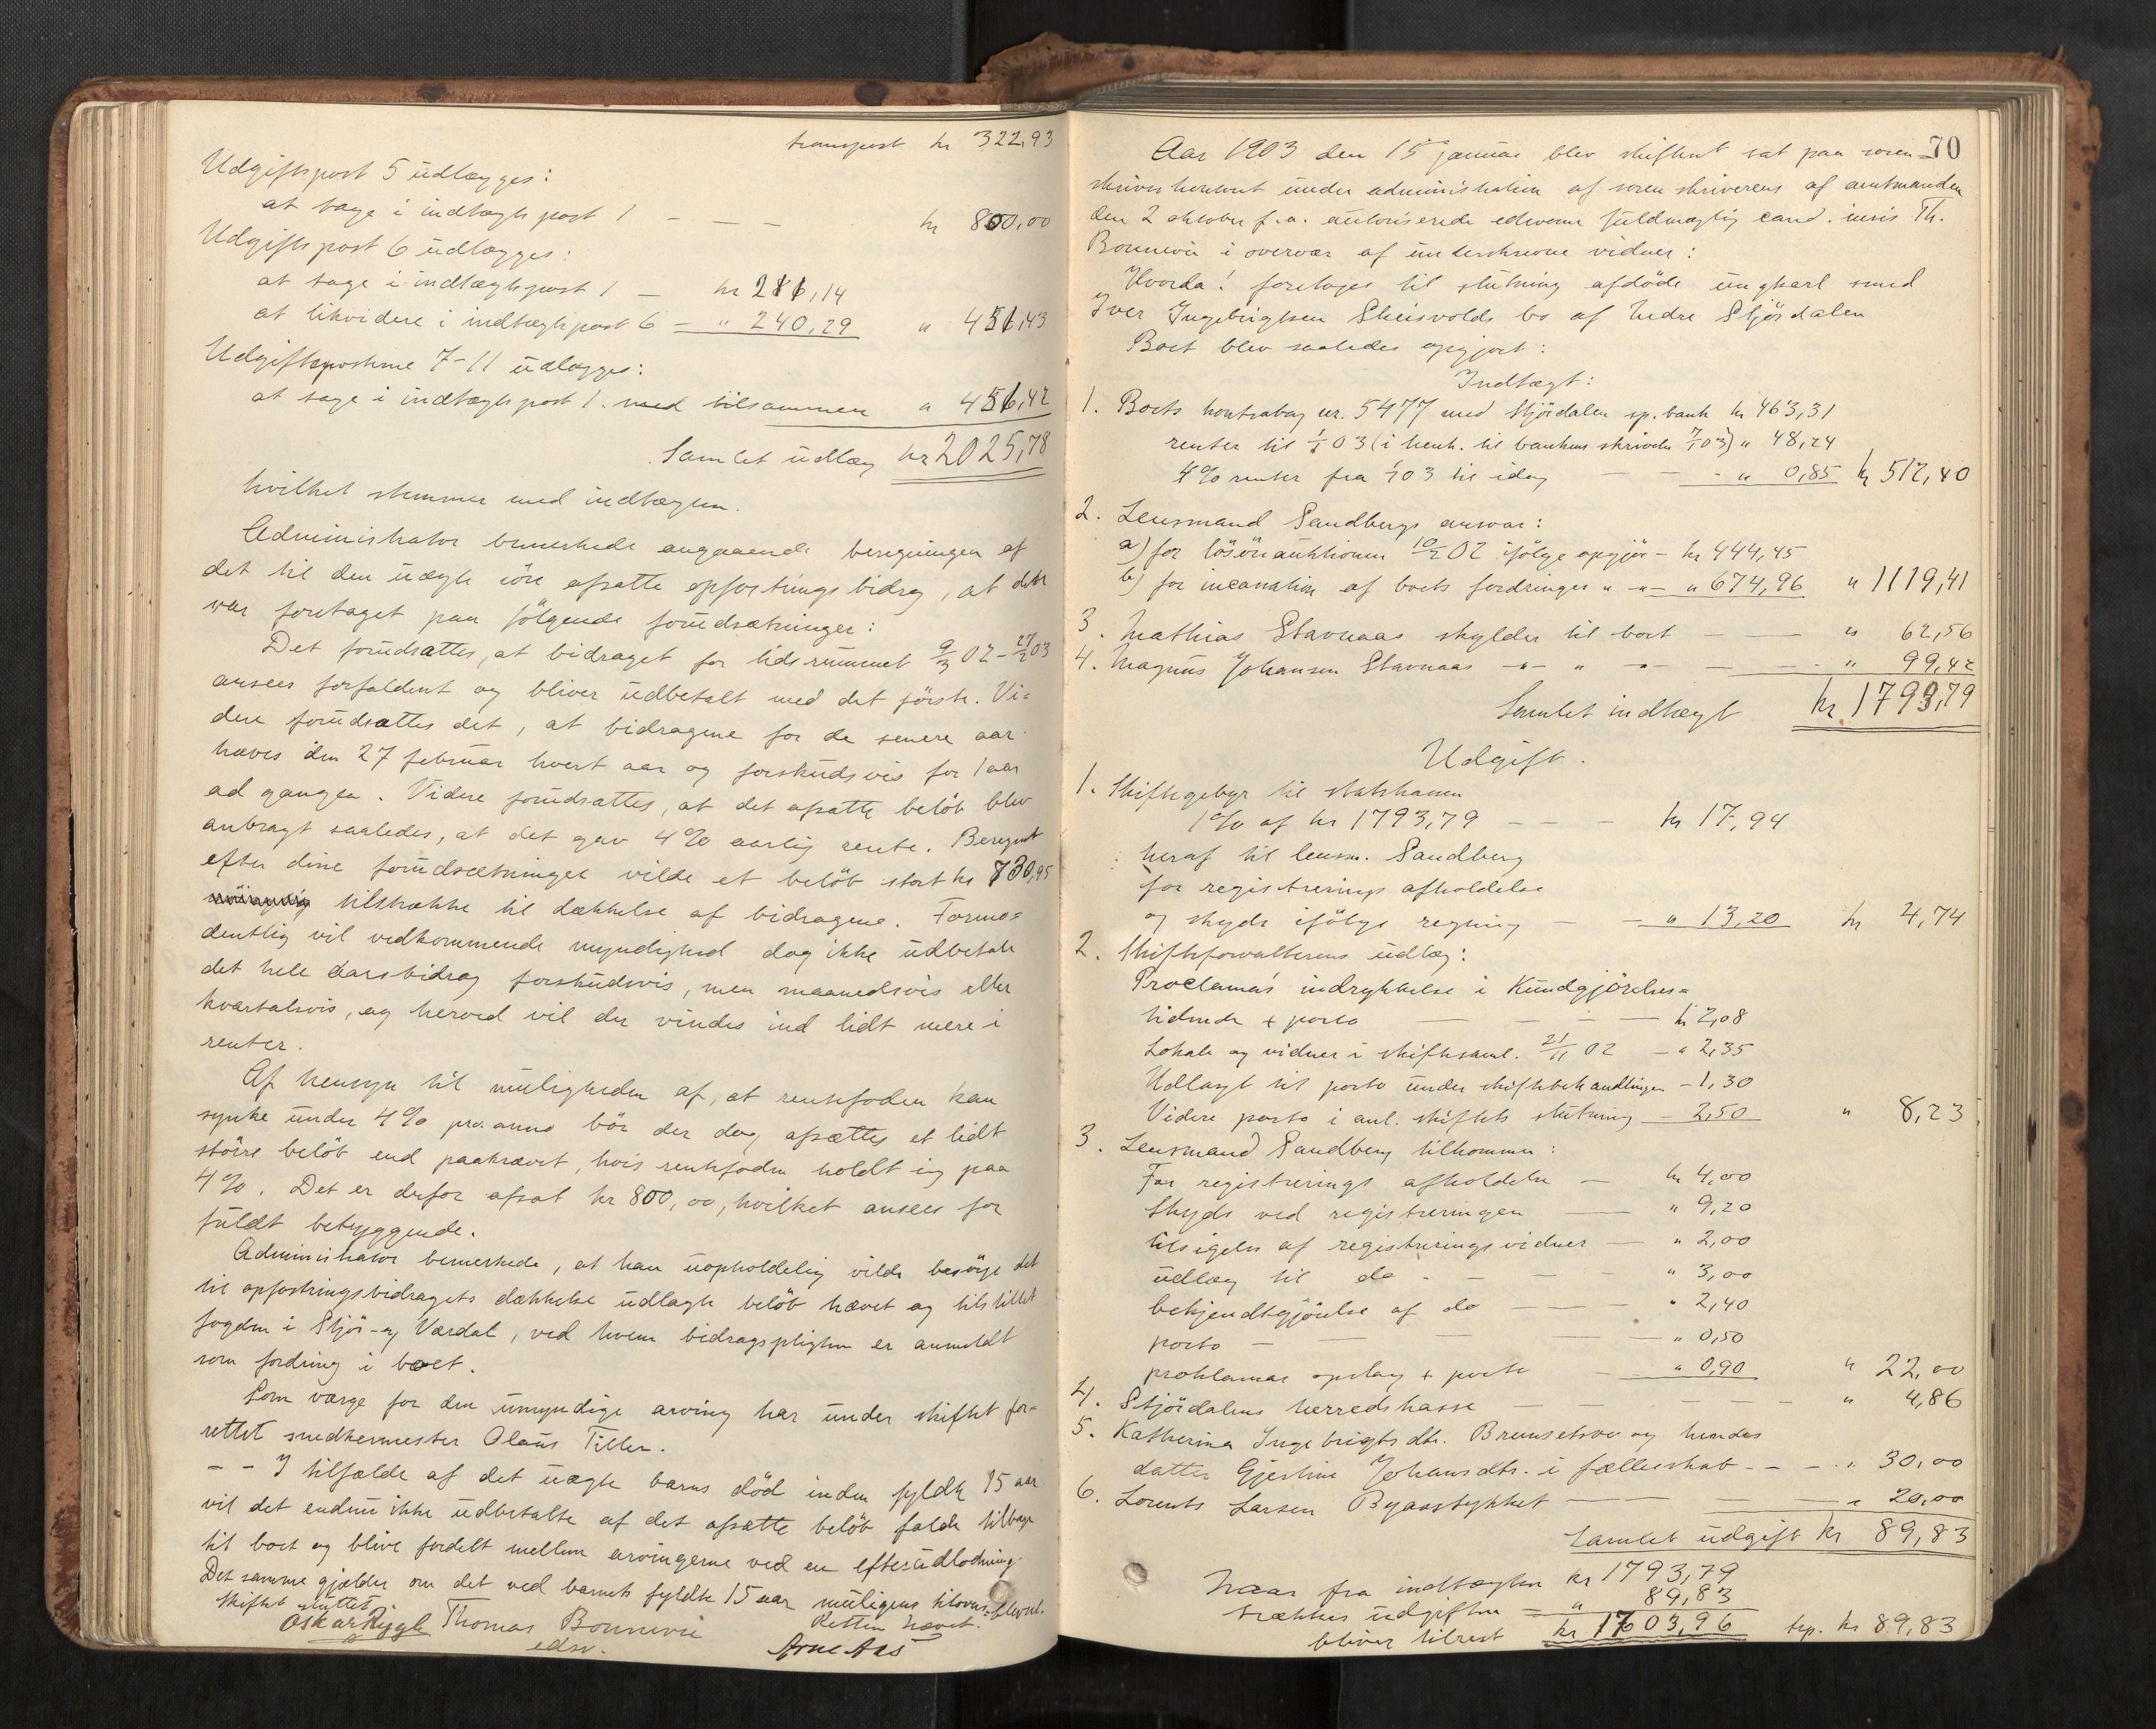 transport kr 322,93
Udgiftspost 5 udlægges:
at tage i indtægts post 1 – – – kr 800,00
Udgiftspost 6 udlægges:
at tage i indtægtspost 1 – kr
at likvidere i indtægtspost 6 – " 240,29 "
Udgiftsposterne 7–11 udlægges:
at tage i indtægts post 1. med tilsammen "
Samlet udlæg kr 2025,78
hvilket stemmer med indtægten.
Administrator bemerkede angaaende beregningen af
det til den uægte søn afsatte opfostringsbidrag, at den
var foretaget paa følgende forudsætninger:
Det forudsattes, at bidraget for tidsrummet 9/3 02 – 27/2 03
ansees forfaldent og bliver udbetalt med det første. Vi=
dere forudsattes det, at bidragene for de senere aar
hæves den 27 februar hvert aar og forskudsvis for 1 aar
ad gangen. Videre forudsattes, at det afsatte beløb blev
anbragt saaledes, at det gav 4 % aarlig rente. Beregnet
efter disse forudsætninger vilde et beløb stort kr 730,95
tilstrække til dækkelse af bidragene. Formo=
dentlig vil vedkommende myndighed dog ikke udbetale
det hele aarsbidrag forskudsvis, men maanedsvis eller
kvartalsvis, og herved vil der vindes ind lidt mere i
renter.
Af hensyn til muligheden af, at rentefoden kan
synke under 4 % pro anno bør der dog afsættes et lidt
større beløb end paakrævet, hvis rentefoden holdt sig paa
4 %. Det er derfor afsat kr 800,00, hvilket ansees for
fuldt betryggende.
Administrator bemerkede, at han uopholdelig vilde besørge det
til opfostringsbidragets dækkelse udlagte beløb hævet og tilstillet
fogden i Stjør- og Værdal, ved hvem bidragspligten er anmeldt
som fordring i boet.
Som værge for den umyndige arving har under skiftet fun-
rettet snedkermester Olaus Tiller.
– – I tilfælde af det uægte barns død inden fyldte 15 aar
vil det endnu ikke udbetalte af det afsatte beløb falde tilbage
til boet og blive fordelt mellem arvingerne ved en efterudlodning.
Det samme gjælder om det ved barnets fyldte 15 aar muligens tilovers=blevne.
Skiftet sluttet. Retten hævet.
Oskar Rygg Thomas Bonnevie
edsv. Arne Aas
70
Aar 1903 den 15 januar blev skifteret sat paa soren=
skriverkontoret under administration af sorenskriverens af amtmanden
den 2 oktober f.a. autoriserede edsvorne fuldmægtig cand. juris Th.
Bonnevie i overvær af underskrevne vidner:
Hvorda! foretoges til slutning afdøde ungkarl smed
Iver Ingebrigtsen Skeisvolds bo af Nedre Stjørdalen
Boet blev saaledes opgjort:
Indtægt:
1. Boets kontrabog nr. 5477 med Stjørdalens sp. bank kr 463,31
renter til 1/1 03 (i henh. til bankens skrivelse 7/1 03) " 48,24
4% renter fra 1/1 03 til idag – – " 0,85 kr 512,40
2. Lensmand Sandbergs ansvar:
a) for løsøreauktionen 10/2 02 ifølge opgjør – kr 444,45
b) for incassation af boets fordringer " –"– " 674,96 " 1119,41
3. Mathias Stavnaas skylder til boet – – " 62,56
4. Magnus Johansen Stavnaas –"– " –"– – – " 99,42
Samlet indtægt kr 1793,79
Udgift.
1. Skiftegebyr til statskassen
1% af kr 1793,79 – – – kr 17,94
heraf til lensm. Sandberg
for registrerings afholdelse
og skyds ifølge regning – – " 13,20 kr 4,74
2. Skifteforvalterens udlæg:
Proclamas indrykkelse i Kundgjørelses=
tidende + porto – – – – kr 2,08
Lokale og vidner i skiftesaml. 21/11 02 – " 2,35
Udlagt til porto under skiftebehandlingen – 1,30
Videre porto i anl. skiftets slutning – 2,50 " 8,23
3. Lensmand Sandberg tilkommer:
For registrerings afholdelse – kr 4,00
Skyds ved registreringen – " 9,20
tilsigelse af registreringsvidner – " 2,00
udlæg til do – – – " 3,00
bekjendtgjørelse af do – – " 2,40
porto – – – – " 0,50
proklamas opslag + porto – " 0,90 " 22,00
4. Stjørdalens herredskasse – – – – – " 4,86
5. Katherina Ingebrigtsdtr. Brunsetsve og hendes
datter Gjertine Johansdtr. i fælleskab – – – " 30,00
6. Lorents Larsen Byaasstykket – – – " 20,00
Samlet udgift kr 89,83
Naar fra indtægten kr 1793,79
trækkes udgiften – " 89,83
bliver tilrest kr 1703,96 trp. kr 89,83